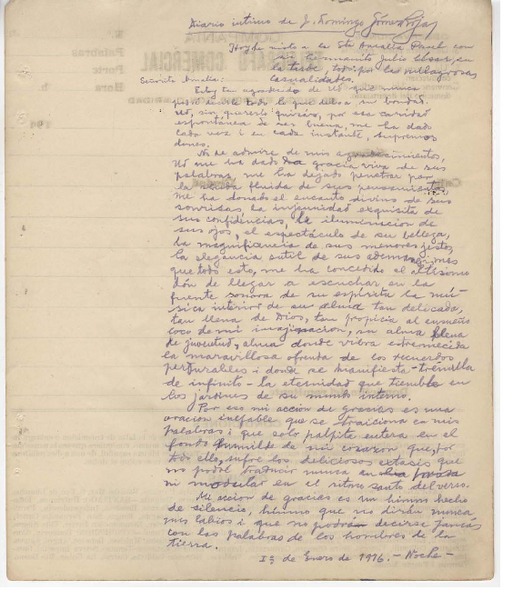 Diario intimo de J. Domingo Gómez Rojas
Hoy he visto a la Sta Amalia Pavel con
su hermanito Julio César, en
la tarde, todo por las villagrosas
casualidades.
Señorita Amalia:
Estoy tan agradecido de Ud. que nunca
podré decirle todo lo que debo a su bondad.
Ud, sin quererlo quizás, por esa caridad
espontánea de ser buena, me ha dado
cada vez i en cada instante, supremos
dones.
No se admire de mis agradecimientos,
Ud me ha dado la gracia viva de sus
palabras, me ha dejado penetrar por
la onda fluida de sus pensamientos,
me ha donado el encanto divino de sus
sonrisas, la injenuidad exquisita de
sus confidencias, la iluminación de
sus ojos, el espectáculo de su belleza,
la magnificencia de sus menores jestos,
la elegancia sutil de sus ademanes, mas
que todo esto, me ha concedido el altísimo
dón de llegar a escuchar en la
fuente sonora de su espíritu la mú-
sica interior de su alma tan delicada,
tan llena de Dios, tan propicia al ensueño
loco de mi imaginacion, su alma llena
de juventud, alma donde vibra estremecida
la maravillosa ofrenda de los recuerdos
perdurables i donde se manifiesta - tremula
de infinito - la eternidad que tiembla en
los jardines de su mundo interno.
Por eso mi acción de gracias es una
oracion inefable que se traiciona en mis
palabras i que solo palpita entera en el
fondo humilde de mi corazon que, por
todo ello, sufre los deliciosos extasis que
no podré traducir nunca en
ni modular en el ritmo santo del verso.
Mi accion de gracias es un himno hecho
de silencio, himno que no dirán nunca
mis labios i que no podrán decirse jamás
con las palabras de los hombres de la
tierra.
13 de Enero de 1916. - Noche -